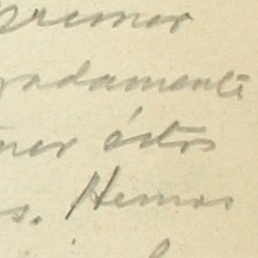 premor
gadamente
ner éstos
s. Hemos